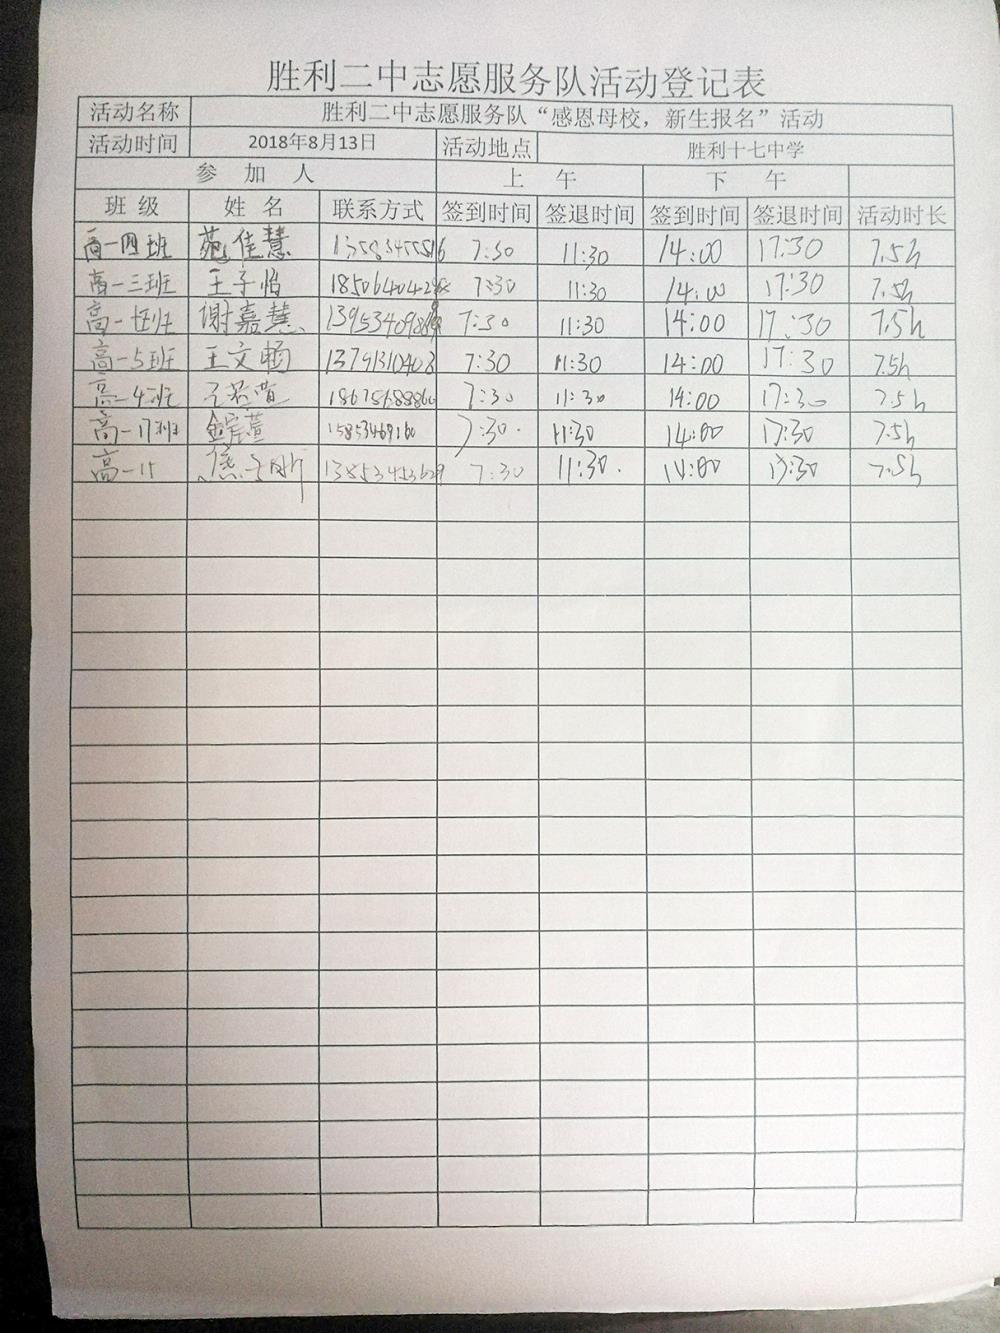 胜利二中志愿服务队活动登记表
活动名称 胜利二中志愿服务队“感恩母校，新生报名”活动
活动时间 2018年8月13日 活动地点 胜利十七中学
参 加 人 上 午 下 午
班 级 姓 名 联系方式 签到时间 签退时间 签到时间 签退时间 活动时长
高一四班 苑佳慧 7:30 11:30 14:00 17:30 7.5h
高一三班 王子怡 7:30 11:30 14:00 17:30 7.5h
谢嘉慧 7:30 11:30 14:00 17:30 7.5h
高一5班 王文畅 13791310403 7:30 11:30 14:00 17:30 7.5h
高一4班 18678688860 7:30 11:30 14:00 17:30 7.5h
高一17班 15853469160 7:30 11:30 14:00 17:30 7.5h
高一11 13853453629 7:30 11:30 14:00 17:30 7.5h